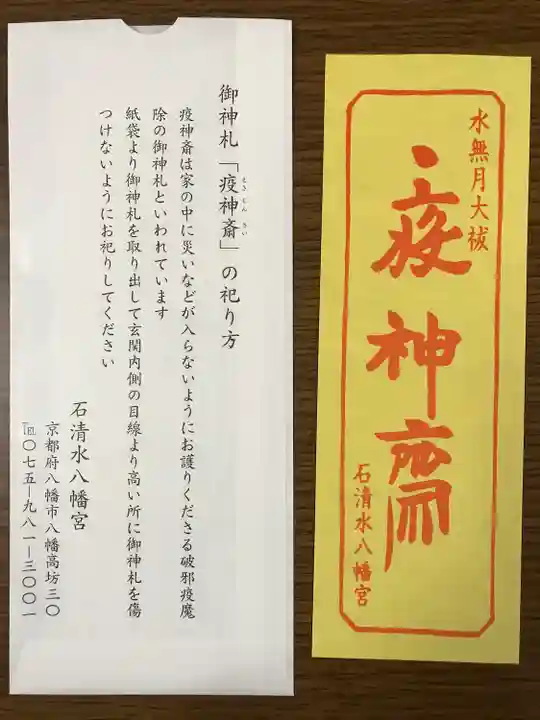 御神札「疫神斎」の祀り方
えきじんさい
疫神斎は家の中に災いなどが入らないようにお護りくださる破邪疫魔
除の御神札といわれています
紙袋より御神札を取り出して玄関内側の目線より高い所に御神札を傷
つけないようにお祀りしてください
石清水八幡宮
京都府八幡市八幡高坊三〇
℡〇七五―九八一―三〇〇一
水無月大祓
疫神齋
石清水八幡宮